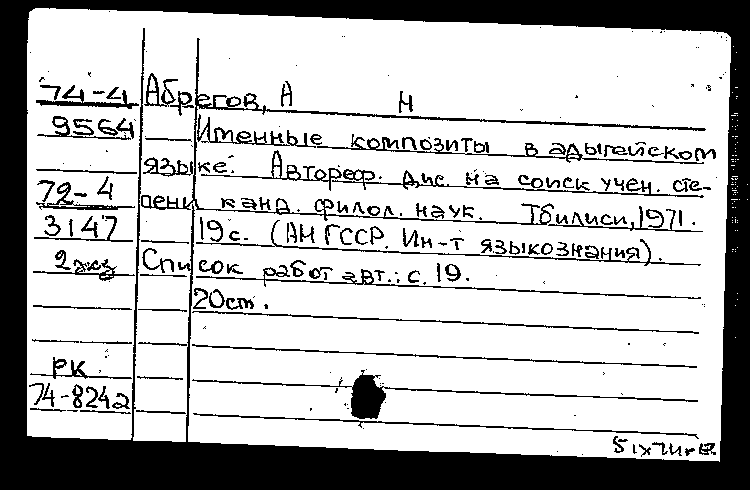 74-4 Абрегов, А Н
9564 Именные композиты в адыгейском
языке. Автореф. дис. на соиск учен. сте-
72-4 пени канд. филол. наук. Тбилиси, 1971.
3147 19 с. (АН ГССР. Ин-т языкознания).
2 экз Список работ авт.: с. 19.
20 см.
РК
74-8242